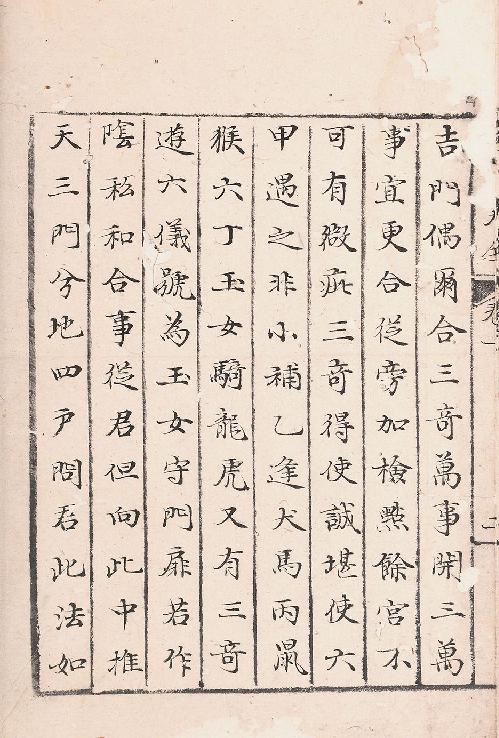 吉門偶爾合三奇萬事開三萬
事宜更合從旁加檢點餘宮不
可有微疵三奇得使誠堪使六
甲遇之非小補乙逢犬馬丙鼠
猴六丁玉女騎龍虎又有三奇
遊六儀號為玉女守門扉若作
陰私和合事從君但向此中推
天三門兮地四戶問君此法如